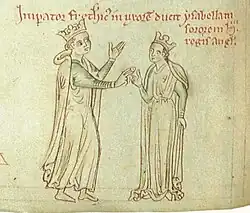 Imp̄ator fr̄ethic' in uxorē ducit ysabellam
sororem h'
regis angl'